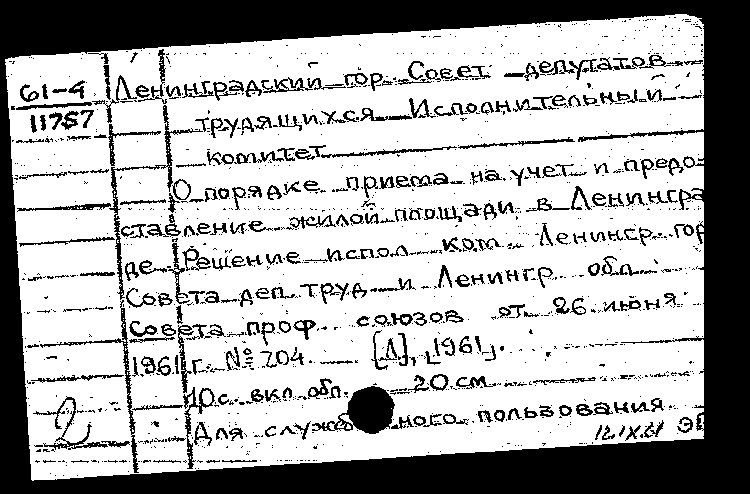 61-4 Ленинградский гор. Совет депутатов
11757 трудящихся Исполнительный
комитет
О порядке приема на учет и предо-
ставление жилой площади в Ленингра
де Решение испол ком. Ленингр. гор
Совета деп. труд и Ленингр обл
Совета проф. союзов от 26 июня
1961 г. № 204. [Л], 1961.
10 с. вкл обл. 20 см
2 Для служебного пользования
12.IX.61